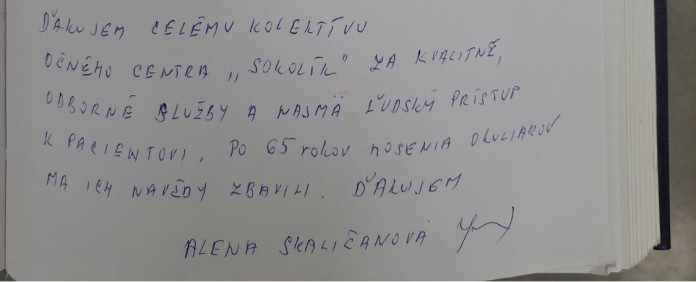 ĎAKUJEM CELÉMU KOLEKTÍVU
OČNÉHO CENTRA „SOKOLÍK" ZA KVALITNÉ,
ODBORNÉ SLUŽBY A NAJMÄ ĽUDSKÝ PRÍSTUP
K PACIENTOVI. PO 65 rokov NOSENIA OKULIAROV
MA ICH NAVŽDY ZBAVILI. ĎAKUJEM
ALENA SKALIČANOVÁ